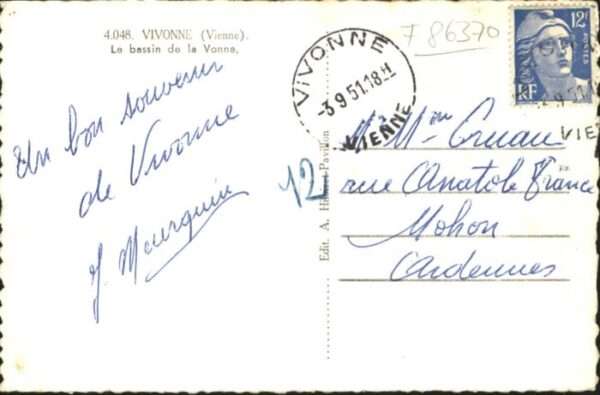 4.048. VIVONNE (Vienne).
Le bassin de la Vonne.
Un bon souvenir
de Vivonne
J. Mourguin
12
Edit. A. Pavillon
F 86370
VIVONNE
-3.9.51.18.H
VIENNE
12F
POSTES
RF
VIE
M. Mme Cruau
rue Anatole France
Mohon
Ardennes